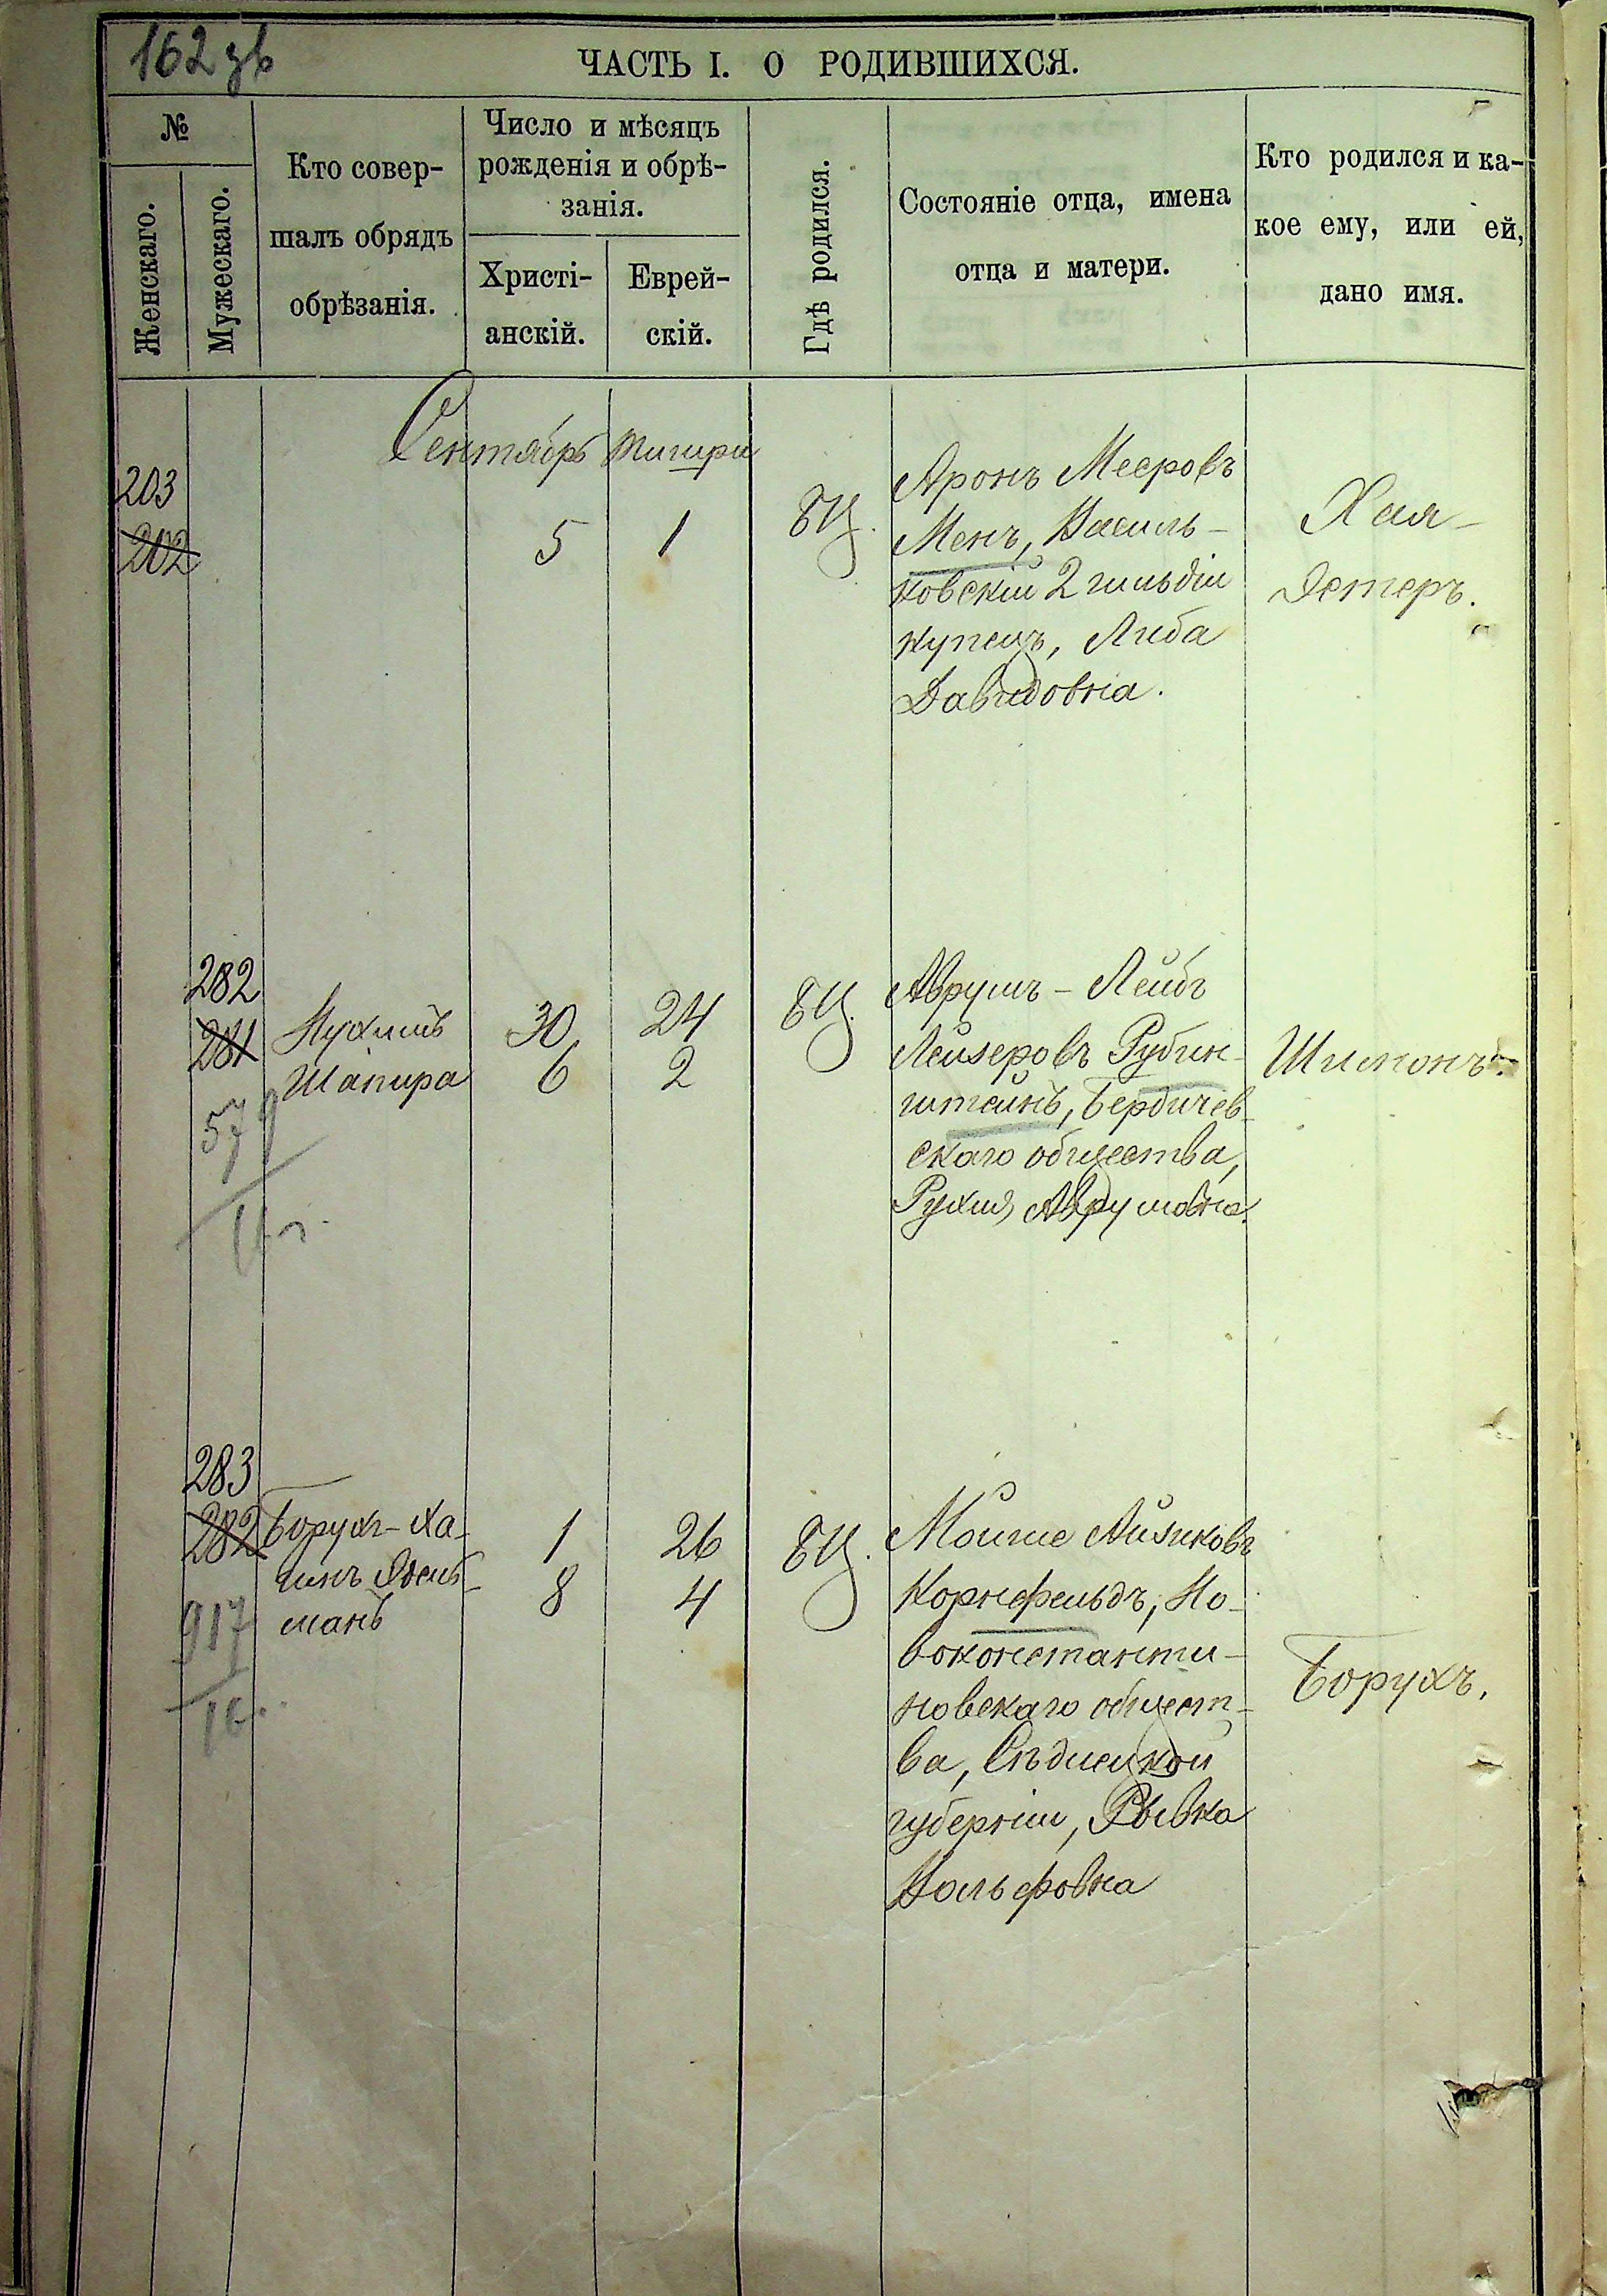 162 зв
ЧАСТЬ I. О РОДИВШИХСЯ.
№
Женскаго.
Мужескаго.
Кто совер-
шалъ обрядъ
обрѣзанія.
Число и мѣсяцъ
рожденія и обрѣ-
занія.
Христі-
анскій.
Еврей-
скій.
Гдѣ родился.
Состояніе отца, имена
отца и матери.
Кто родился и ка-
кое ему, или ей,
дано имя.
Сентябрь Тишри
203
202
5
1
БЦ.
Аронъ Мееровъ
Менъ, Василь-
ковскій 2 гильдіи
купецъ, Либа
Давидовна.
Хая-
Эстеръ.
282
281
579
Нухимъ
Шапира
30
6
24
2
БЦ.
Аврумъ-Лейбъ
Лейзеровъ Рубин-
штейнъ, Бердичев-
скаго общества,
Рухля Аврумовна.
Шимонъ.
283
282
917
Борухъ-Ха-
имъ Эдель-
манъ
1
8
26
4
БЦ.
Мойше Айзиковъ
Корнфельдъ, Но-
воконстанти-
новскаго общест-
ва, Сѣдлецкой
губерніи, Рывка
Вольфовна
Борухъ.